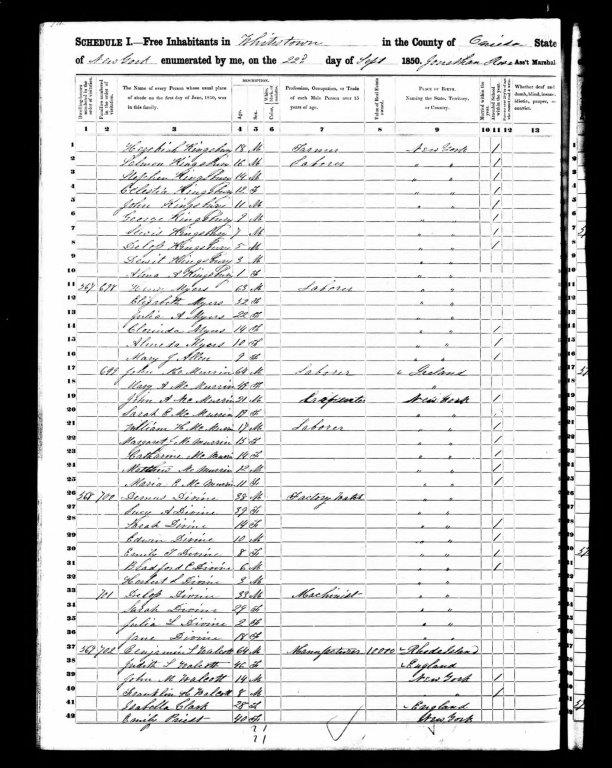 SCHEDULE I.—Free Inhabitants in Whitestown in the County of Oneida State
of New York enumerated by me, on the 22d day of Sept 1850. Jonathan Ass't Marshal
Dwelling-houses numbered in the order of visitation.
Families numbered in the order of visitation.
The Name of every Person whose usual place of abode on the first day of June, 1850, was in this family.
DESCRIPTION.
Age.
Sex.
Color
Profession, Occupation, or Trade of each Male Person over 15 years of age.
Value of Real Estate owned.
PLACE OF BIRTH. Naming the State, Territory, or Country.
Married within the year.
Attended School within the year.
Whether deaf and dumb, blind, insane, idiotic, pauper, or convict.
1 2 3 4 5 6 7 8 9 10 11 12 13
1 Hezekiah Kingsbury 18 M Farmer New York 1
2 Kingsbury 16 M Laborer " " 1
3 Stephen Kingsbury 14 M " " 1
4 Celestia Kingsbury 12 F " " 1
5 John Kingsbury 11 M " " 1
6 George Kingsbury 9 M " " 1
7 Lewis Kingsbury 7 M " " 1
8 Delos Kingsbury 5 M " " 1
9 Kingsbury 3 M " "
10 Alma A Kingsbury 1 F " "
11 567 698 Henry Myers 63 M Laborer " "
12 Elizabeth Myers F " "
13 Julia A Myers 22 F " "
14 Clorinda Myers 14 F " " 1
15 Almeda Myers 10 F " " 1
16 Mary J Allen 9 F " " 1
17 699 John Mc Murrin M Laborer Ireland
18 Mary A Mc Murrin F "
19 John A Mc Murrin 21 M Carpenter New York 1
20 Sarah E Mc Murrin F " "
21 William H Mc Murrin 17 M Laborer " " 1
22 Margaret J Mc Murrin 15 F " " 1
23 Catharine Mc Murrin 14 F " " 1
24 Matthew Mc Murrin 12 M " " 1
25 Maria E Mc Murrin 11 F " " 1
26 568 700 Divine 38 M Factory " "
27 Lucy A Divine 39 F " "
28 Divine 14 F " " 1
29 Edwin Divine 10 M " " 1
30 Emily T Divine 8 F " " 1
31 Bradford C Divine 6 M " " 1
32 Herbert S Divine 3 M " "
33 701 Delos Divine 33 M Machinist " "
34 Sarah Divine 29 F " "
35 Julia L Divine 2 F " "
36 Jane Divine 18 F " "
37 569 702 Benjamin S Walcott 64 M Manufacturer 10000 Rhode Island
38 Judith S Walcott 46 F England
39 John M Walcott 14 M New York 1
40 Franklin Walcott 8 M " 1
41 Isabella Clark 28 F England
42 Emily Priest 40 F New York